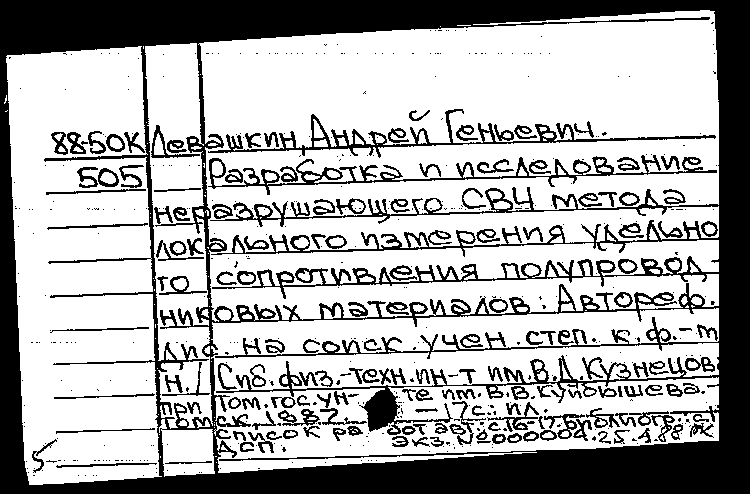 88-50К Левашкин, Андрей Геньевич.
505 Разработка и исследование
неразрушающего СВЧ метода
локального измерения удельно
го сопротивления полупровод-
никовых материалов: Автореф.
дис. на соиск. учен. степ. к.ф.-м
н. / Сиб. физ.-техн. ин-т им. В.Д. Кузнецова
при Том. гос. ун-те им. В.В. Куйбышева. -
Томск, 1987. - 17 с.: ил.
Список работ авт.: с. 16-17. Библиогр.: с.
ДСП. Экз. №000004. 25.4.88
5